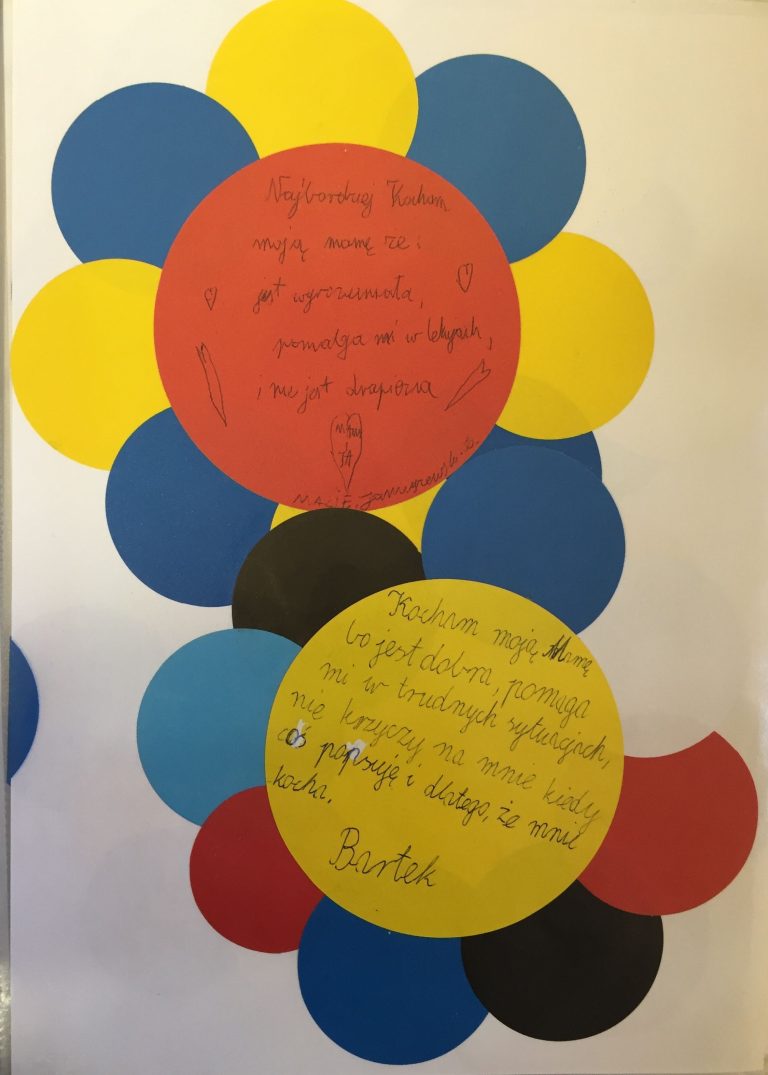 Najbardziej Kocham
moją mamę że:
jest wyrozumiała,
pomalga mi w lekcjach,
i nie jest drapieżna
Kocham moją Mamę
bo jest dobra, pomaga
mi w trudnych sytuacjach,
nie krzyczy na mnie kiedy
coś popsuję i dlatego, że mnie
kocha.
Bartek